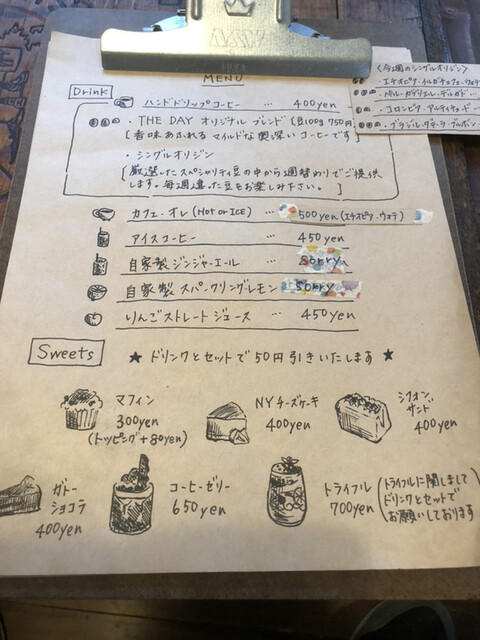 MENU
Drink
ハンドドリップコーヒー … 400yen
・THE DAY オリジナル ブレンド (豆100g 750円)
[香味あふれる マイルドな奥深い コーヒーです]
・シングルオリジン
[厳選したスペシャリティ豆の中から週替わりでご提供
します。毎週違った豆をお楽しみ下さい。]
カフェ・オレ (Hot or ICE) … 500yen (エチオピア・ウォテ)
アイスコーヒー … 450yen
自家製ジンジャーエール … sorry
自家製 スパークリングレモン sorry
りんごストレートジュース … 450yen
Sweets
★ ドリンクとセットで50円引きいたします ★
マフィン
300yen
(トッピング+80yen)
NYチーズケーキ
400yen
シフォン
サンド
400yen
ガトー
ショコラ
400yen
コーヒーゼリー
650yen
トライフル
700yen
(トライフルに関しまして
ドリンクとセットで
お願いしております)
〈今週のシングルオリジン〉
・エチオピア・イルガチェフェ・ウォテ
・ペルー・
・コロンビア・
・ブラジル・